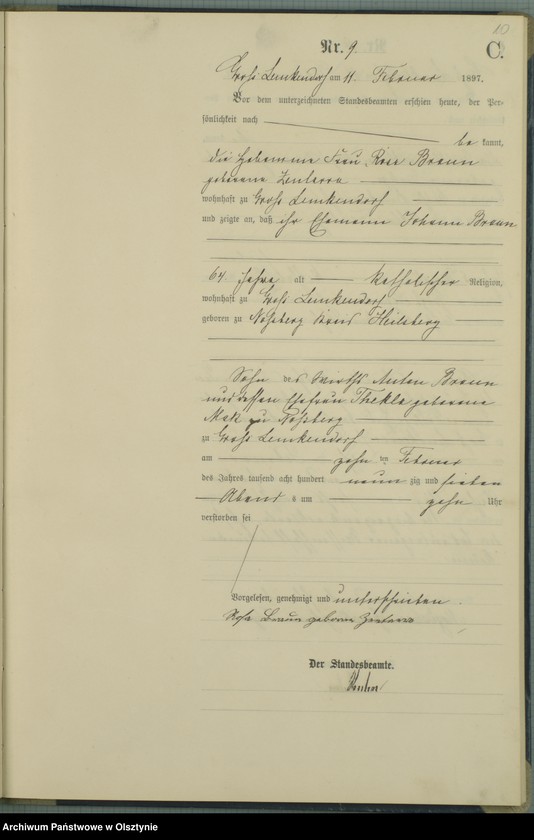 10
Nr. 9
C.
Groß Lemkendorf am 11 Februar 1897.
Vor dem unterzeichneten Standesbeamten erschien heute, der Per-
sönlichkeit nach
be kannt,
die Hebamme Frau Rosa Braun
geborene
wohnhaft zu Groß Lemkendorf
und zeigte an, daß ihr Ehemann Johann Braun
64 Jahre alt katholischer Religion,
wohnhaft zu Groß Lemkendorf
geboren zu Noßberg Kreis Heilsberg
Sohn des Wirths Anton Braun
und dessen Ehefrau Thekla geborene
zu Noßberg
zu Groß Lemkendorf
am zehn ten Februar
des Jahres tausend acht hundert neun zig und sieben
Abend s um zehn Uhr
verstorben sei
Vorgelesen, genehmigt und unterschrieben.
Rosa Braun geborene
Der Standesbeamte.
Archiwum Państwowe w Olsztynie